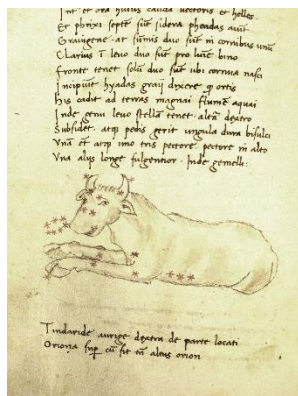 int et ora huius cauda vectoris et helles.
Et phrixi septē sūt sidera pheadas aiūt
Graiugene at sūmis duo sūt in cornibus unū
Clarius ī levo duo sūt pro lumē bino
Fronte tenet solū duo sūt ubi cornua nasci
Incipiūt hyadas graij dixere q ortis
his cadit ad terras magnai flumē aquai
Inde genu levo stellā tenet altā dextro
Subsidet atqȝ pedis gerit ungula dura bisulci
Vnā et atqȝ imo tris pectore pectore in alto
Vna alijs longe fulgentior Inde gemelli:
Tindaride aurige dextra de parte locati
Oriona sup cū sit tā altus orion